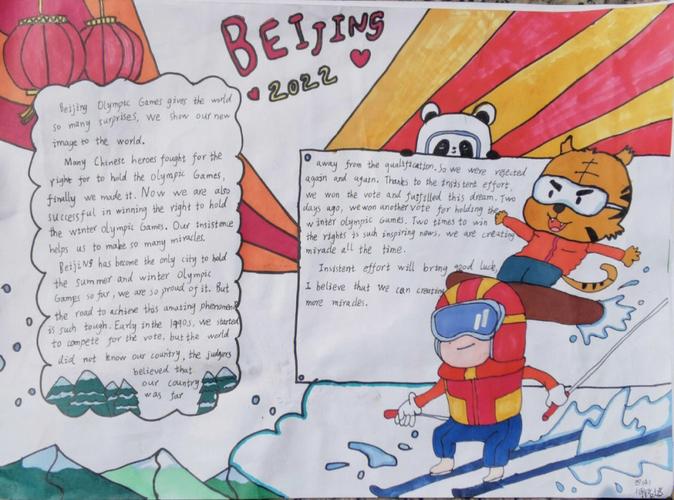 BEIJING
2022
Beijing Olympic Games gives the world
so many surprises, we show our new
image to the world.
Many Chinese heroes fought for the
right for to hold the olympic Games,
finally we made it. Now we are also
successful in winning the right to hold
the winter Olympic Games. Our insistence
helps us to make so many miracles.
BeijiNg has become the only city to hold
the summer and winter Olympic
Games so far, we are so proud of it. But
the road to achieve this amazing phenomena
is such tough. Early in the 1990s, we started
to compete for the vote, but the world
did not know our country, the judgers
believed that
our country
was far
away from the qualification. So we were rejected
again and again. Thanks to the insistent effort,
we won the vote and fulfilled this dream. Two
days ago, we won another vote for holding the
winter olympic Games. Two times to win
the rights is such inspiring news, we are creating
miracle all the time.
Insistent effort will bring good luck,
I believe that we can creating
more miracles.